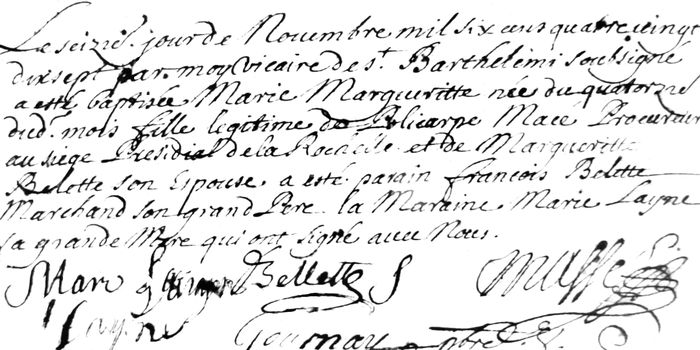 Le seizie. jour de Novembre mil six cens quatre vingt
dix sept par moy vicaire de st. Barthelemi soubsigné
a esté baptisée Marie Margueritte née du quatorzie
dud. mois fille legitime de Policarpe Macé Procureur
au siege Presidial de la Rochelle et de Margueritte
Belette son Epouse. a esté parain françois Belette
Marchand son grand Pere. la Maraine. Marie Layne
sa grande Mere qui ont signé avec Nous.
Mar Bellette
Layne Gournay